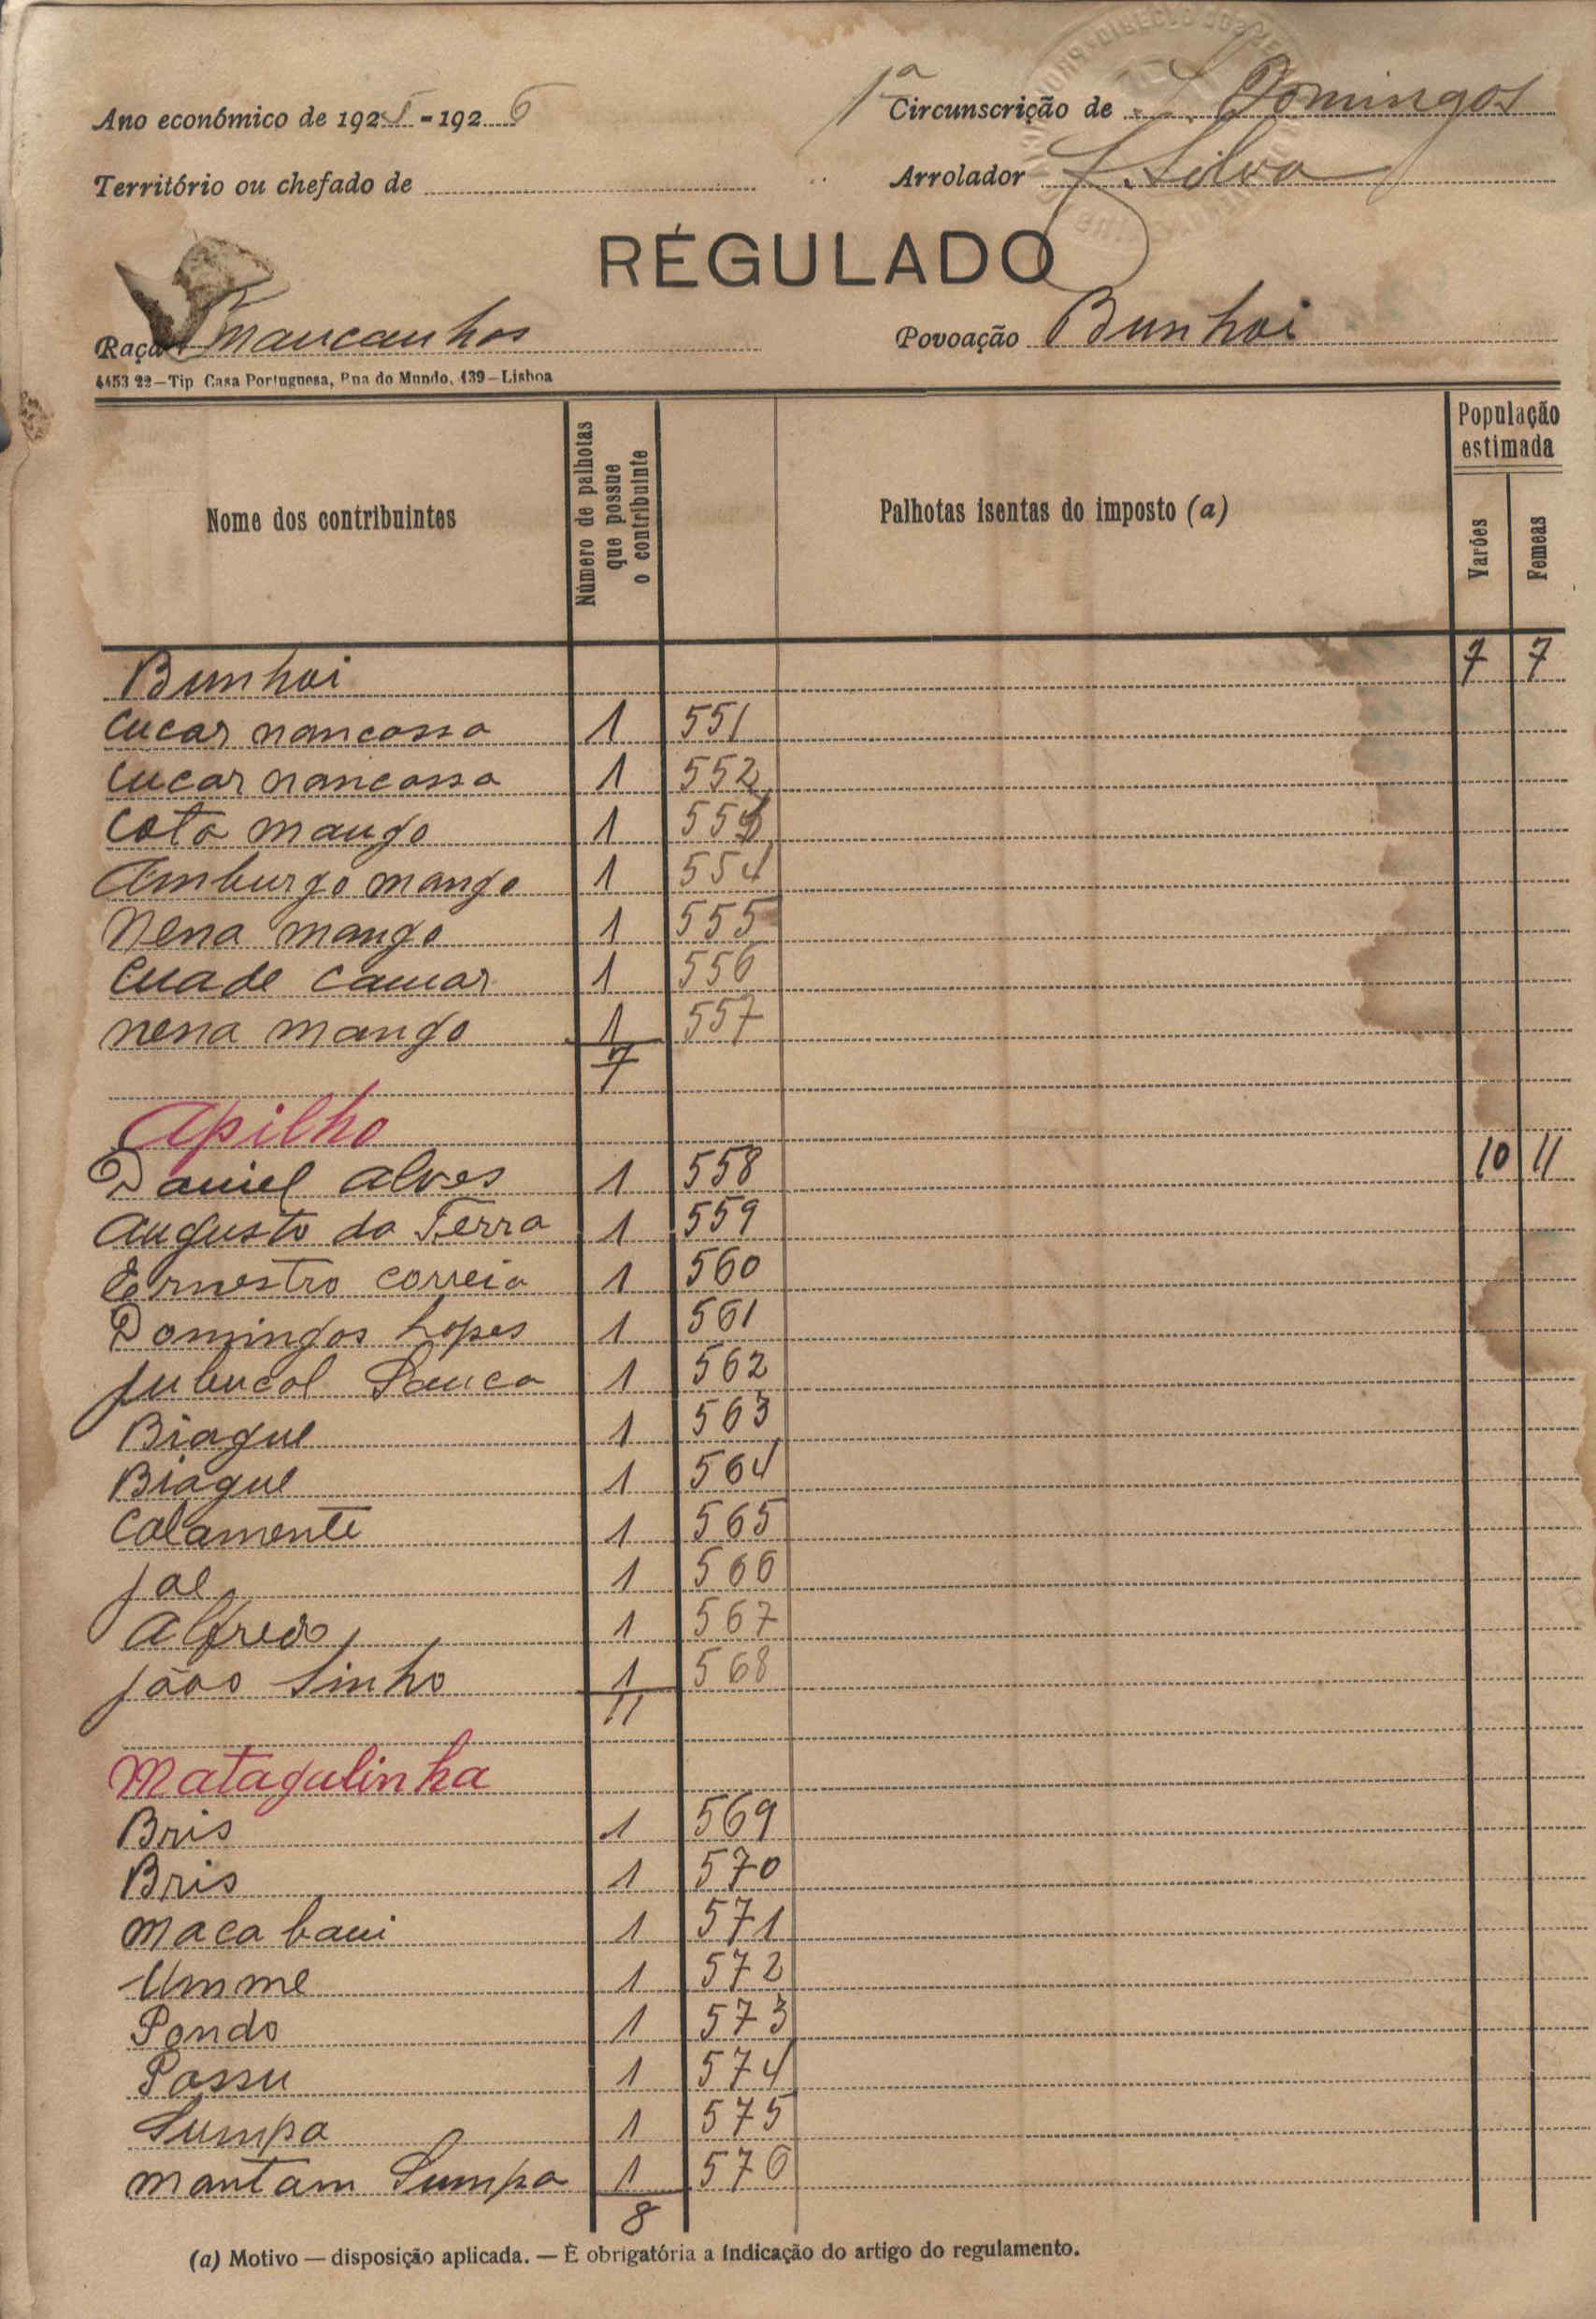 Ano económico de 1925-1926
1ª Circunscrição de S. Domingos
Território ou chefado de
Arrolador F. Silva
RÉGULADO
Raça mancanhos
Povoação Bunhoi
4453 22—Tip Casa Portuguesa, Rua do Mundo, 139—Lisboa
Nome dos contribuintes
Número de palhotas que possue o contribuinte
Palhotas isentas do imposto (a)
População estimada
Varões
Femeas
Bunhoi 7 7
Cucar nancassa 1 551
Cucar nancassa 1 552
Cota mango 1 553
Amburgo mango 1 554
Nena mango 1 555
Cuade Camar 1 556
nena mango 1 557
7
Apilho
Daniel Alves 1 558 10 11
Augusto da Ferra 1 559
Ernestro correia 1 560
Domingos Lopes 1 561
Jubucol Sanca 1 562
Biague 1 563
Biague 1 564
Calamente 1 565
Jal 1 566
Alfredo 1 567
Jâoo Sinho 1 568
11
Matagalinha
Bris 1 569
Bris 1 570
maca baui 1 571
Umme 1 572
Pondo 1 573
Possu 1 574
Sumpa 1 575
mantam Sumpa 1 576
8
(a) Motivo — disposição aplicada. — É obrigatória a indicação do artigo do regulamento.